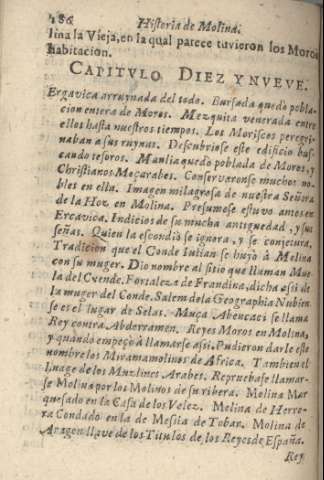 186 Historia de Molina.
lina la Vieja, en la qual parece tuvieron los Moros
habitacion.
CAPITVLO DIEZ Y NVEVE.
Ergavica arruynada del todo. Bursada quedò pobla-
cion entera de Moros. Mezquita venerada entre
ellos hasta nuestros tiempos. Los Moriscos peregri-
naban a sus ruynas. Descubriose este edificio bus-
cando tesoros. Manlia quedo poblada de Moros, y
Christianos Moçarabes. Conservaronse muchos no-
bles en ella. Imagen milagrosa de nuestra Señora
de la Hoz en Molina. Presumese estuvo antes en
Ercavica. Indicios de su mucha antiguedad, y sus
señas. Quien la escondiò se ignora, y se conjetura,
Tradicion que el Conde Iulian se huyò à Molina
con su muger. Dio nombre al sitio que llaman Mue-
la del Cuende. Fortaleza de Fraudina, dicha assi de
la muger del Conde. Salem de la Geographia Nubien
se es el lugar de Selas. Muça Abencaci se llama
Rey contra Abderramen. Reyes Moros en Molina,
y quando empeçò à llamarse assi. Pudieron darle este
nombre los Miramamolines de Africa. Tambien el
Linage de los Muzlines Arabes. Repruebase llamar-
se Molina por los Molinos de su ribera. Molina Mar
quesado en la Casa de los Velez. Molina de Herre-
ra Condado en la de Messia de Tobar. Molina de
Aragon llave de los Titulos de los Reyes de España.
Rey